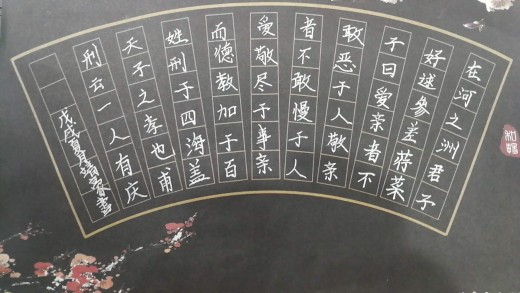 在河之洲君子
好逑參差荇菜
子曰愛亲者不
敢恶于人敬亲
者不敢慢于人
愛敬尽于事亲
而德教加于百
姓刑于四海盖
天子之孝也甫
刑云一人有庆
戊戌夏書